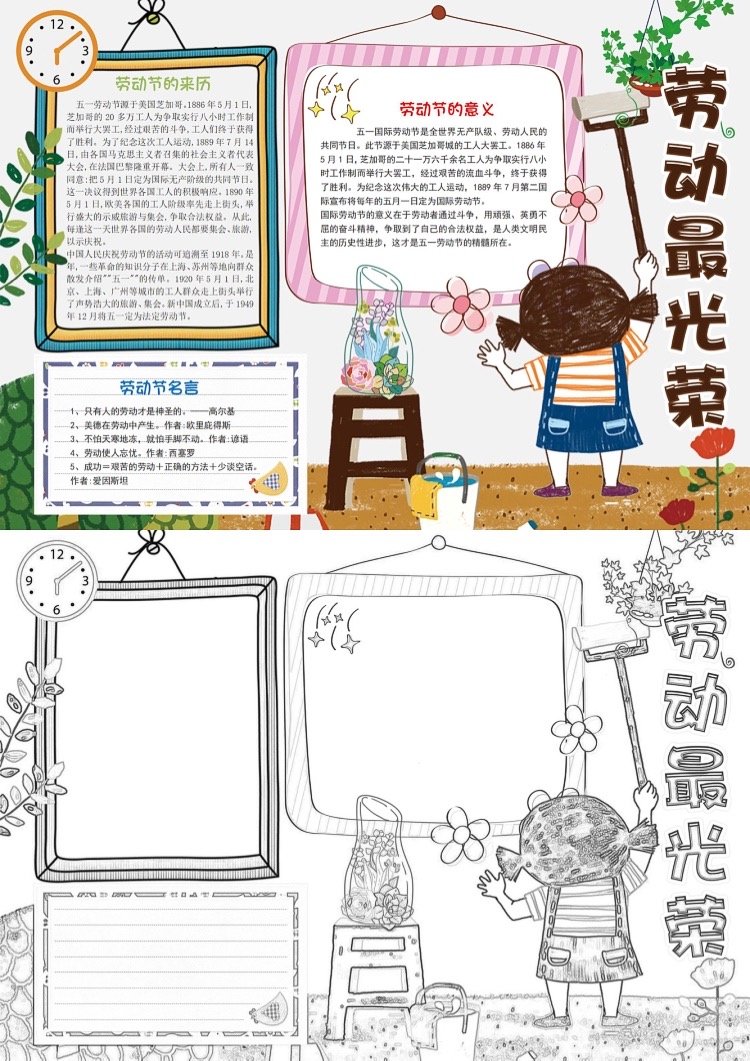 12
9
3
6
劳动节的来历
五一劳动节源于美国芝加哥。1886年5月1日,
芝加哥的20多万工人为争取实行八小时工作制
而举行大罢工,经过艰苦的斗争,工人们终于获得
了胜利。为了纪念这次工人运动,1889年7月14
日,由各国马克思主义者召集的社会主义者代表
大会,在法国巴黎隆重开幕。大会上,所有人一致
同意:把5月1日定为国际无产阶级的共同节日。
这一决议得到世界各国工人的积极响应。1890年
5月1日,欧美各国的工人阶级率先走上街头,举
行盛大的示威旅游与集会,争取合法权益。从此,
每逢这一天世界各国的劳动人民都要集会、旅游,
以示庆祝。
中国人民庆祝劳动节的活动可追溯至1918年。是
年,一些革命的知识分子在上海、苏州等地向群众
散发介绍""五一""的传单。1920年5月1日,北
京、上海、广州等城市的工人群众走上街头举行
了声势浩大的旅游、集会。新中国成立后,于1949
年12月将五一定为法定劳动节。
劳动节的意义
五一国际劳动节是全世界无产队级、劳动人民的
共同节日。此节源于美国芝加哥城的工人大罢工。1886年
5月1日,芝加哥的二十一万六千余名工人为争取实行八小
时工作制而举行大罢工,经过艰苦的流血斗争,终于获得
了胜利。为纪念这次伟大的工人运动,1889年7月第二国
际宣布将每年的五月一日定为国际劳动节。
国际劳动节的意义在于劳动者通过斗争,用顽强、英勇不
屈的奋斗精神,争取到了自己的合法权益,是人类文明民
主的历史性进步,这才是五一劳动节的精髓所在。
劳动最光荣
劳动节名言
1、只有人的劳动才是神圣的。——高尔基
2、美德在劳动中产生。作者:欧里庇得斯
3、不怕天寒地冻,就怕手脚不动。作者:谚语
4、劳动使人忘忧。作者:西塞罗
5、成功=艰苦的劳动+正确的方法+少谈空话。
作者:爱因斯坦
12
9
3
6
劳动最光荣